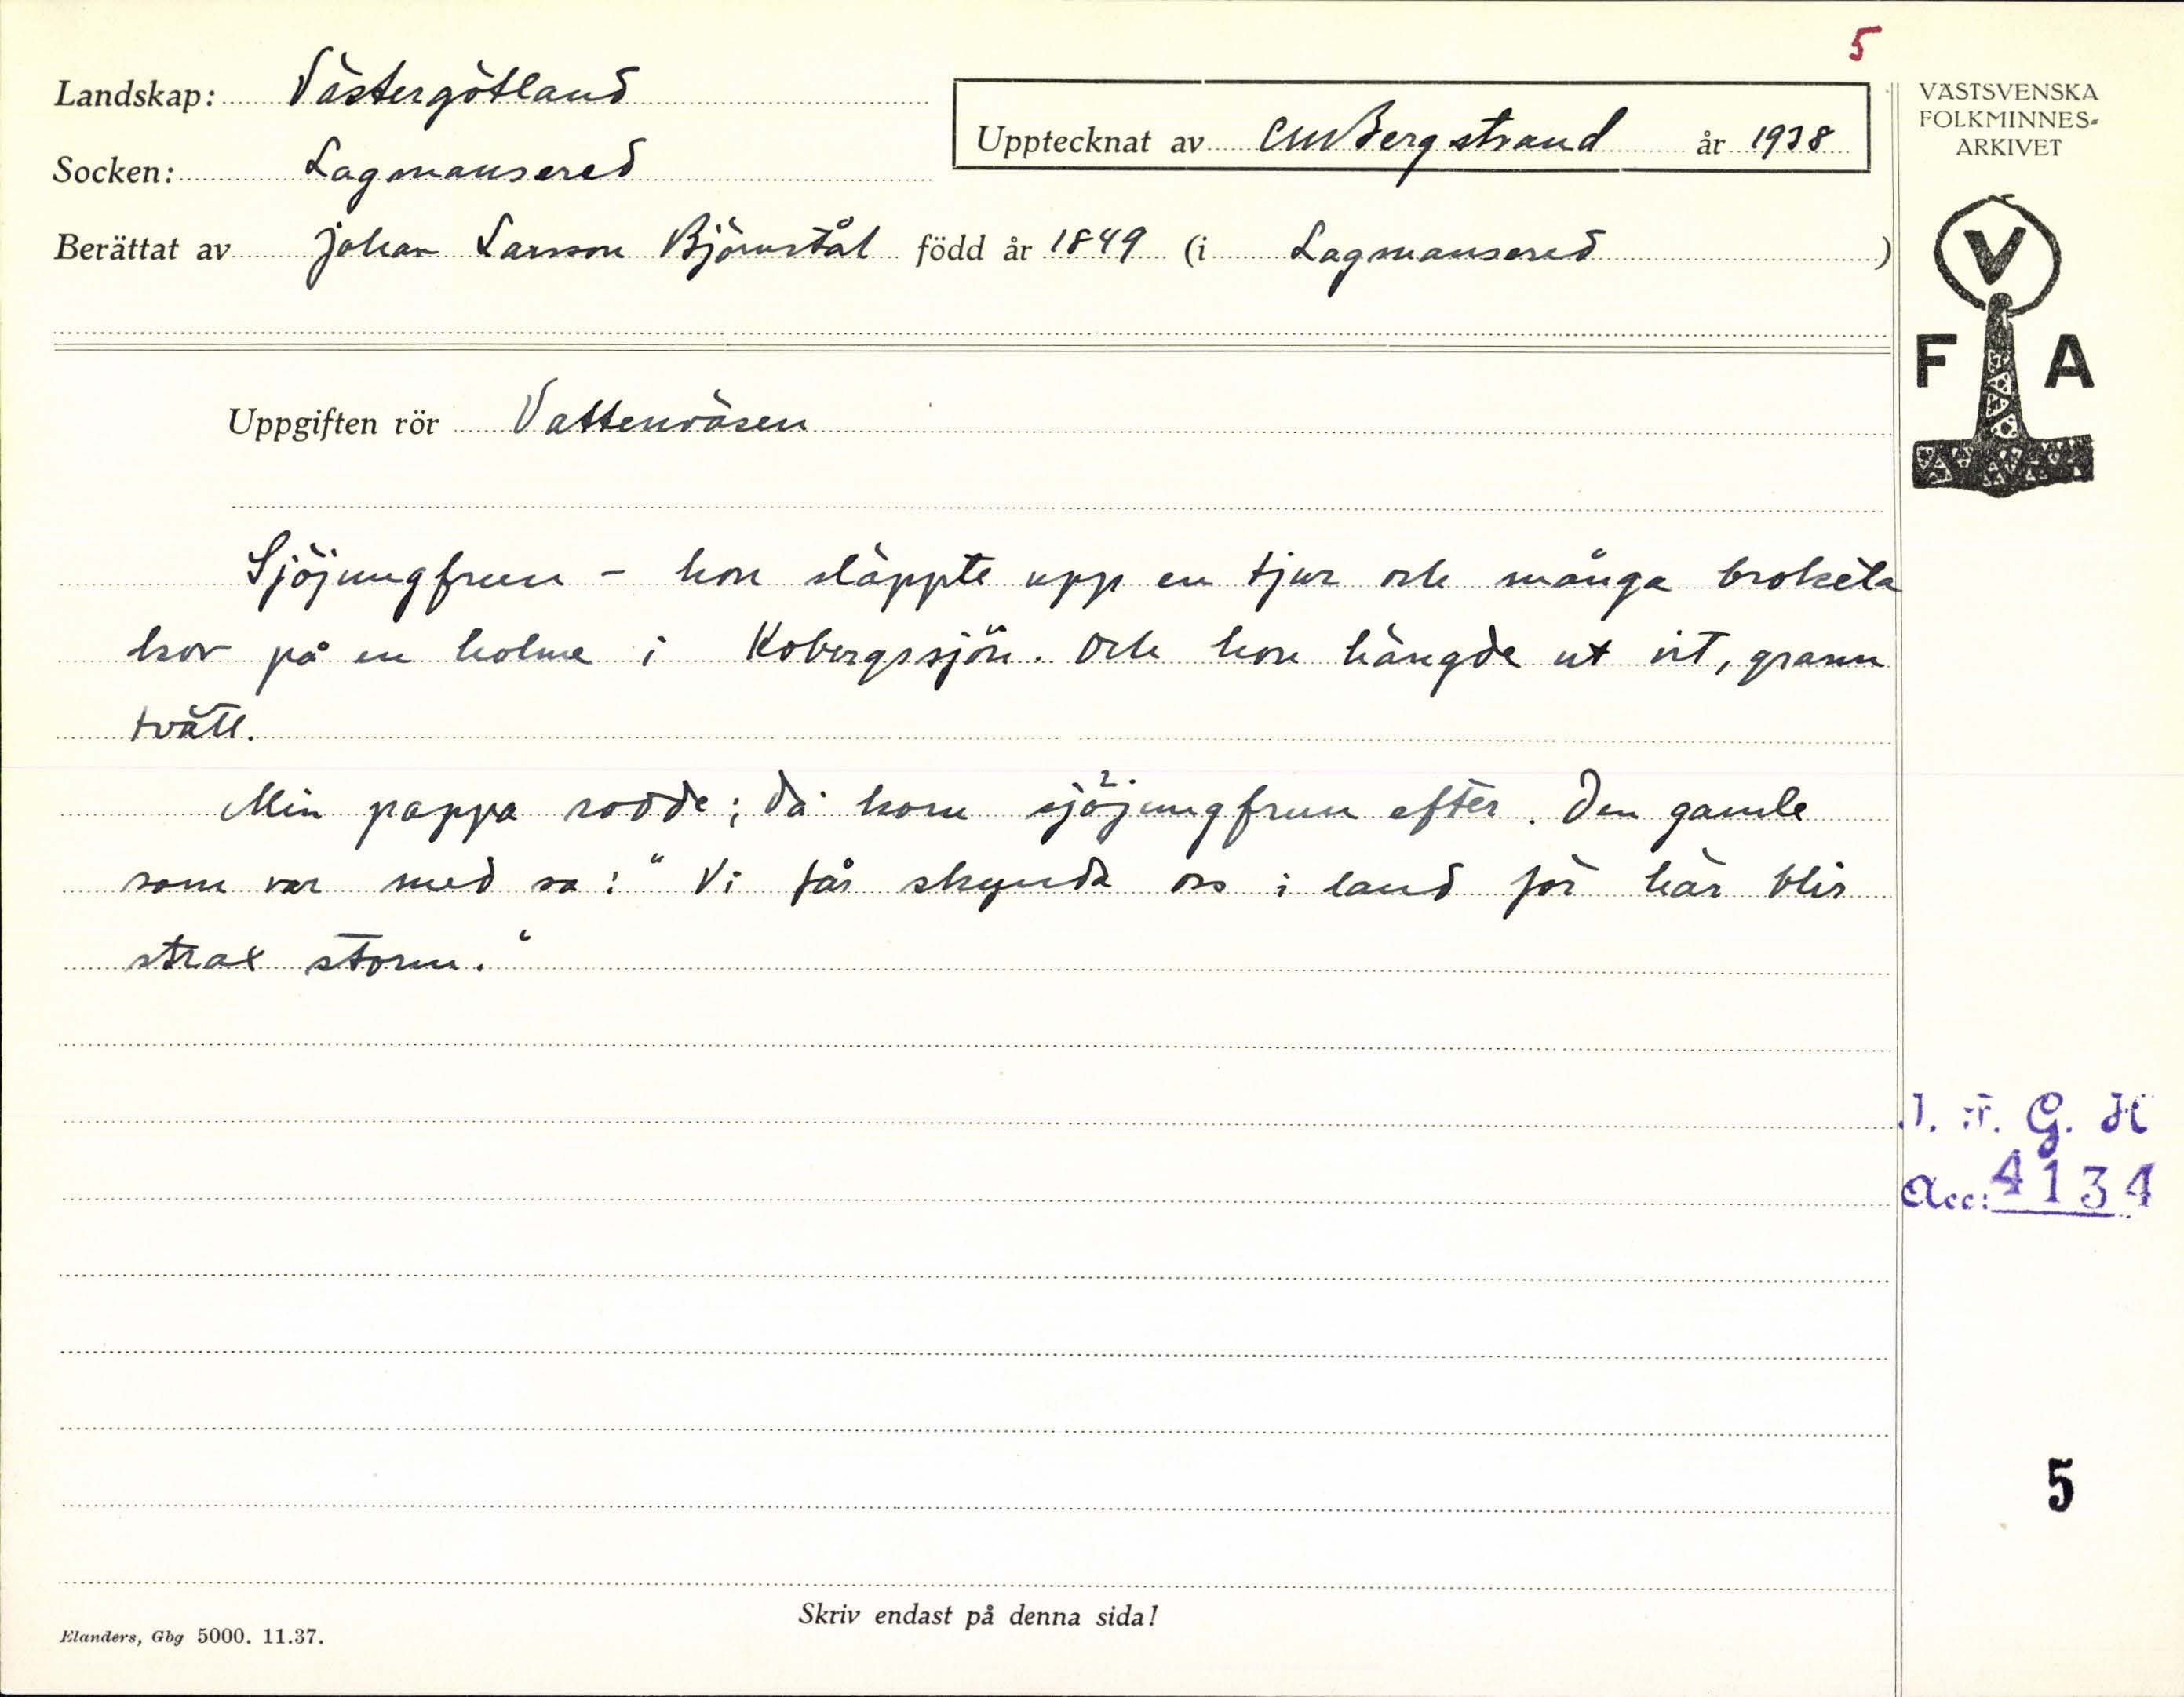 5
Landskap: Västergötland
Upptecknat av CMBergstrand år 1938
VÄSTSVENSKA
FOLKMINNES-
ARKIVET
Socken: Lagmansered
Berättat av Johan Larsson Björnstål född år 1849 (i Lagmansered)
V
F A
Uppgiften rör Vattenväsen
Sjöjungfrun - hon släppte upp en tjur och många brokëta
kor på en holme i Kobergssjön. Och hon hängde ut vit, grann
tvätt.
Min pappa rodde; då kom sjöjungfrun efter. Den gamle
som var med sa: "Vi får skynda oss i land för här blir
strax storm."
I. F. G. H
Acc: 4134
5
Skriv endast på denna sida!
Elanders, Gbg 5000. 11.37.